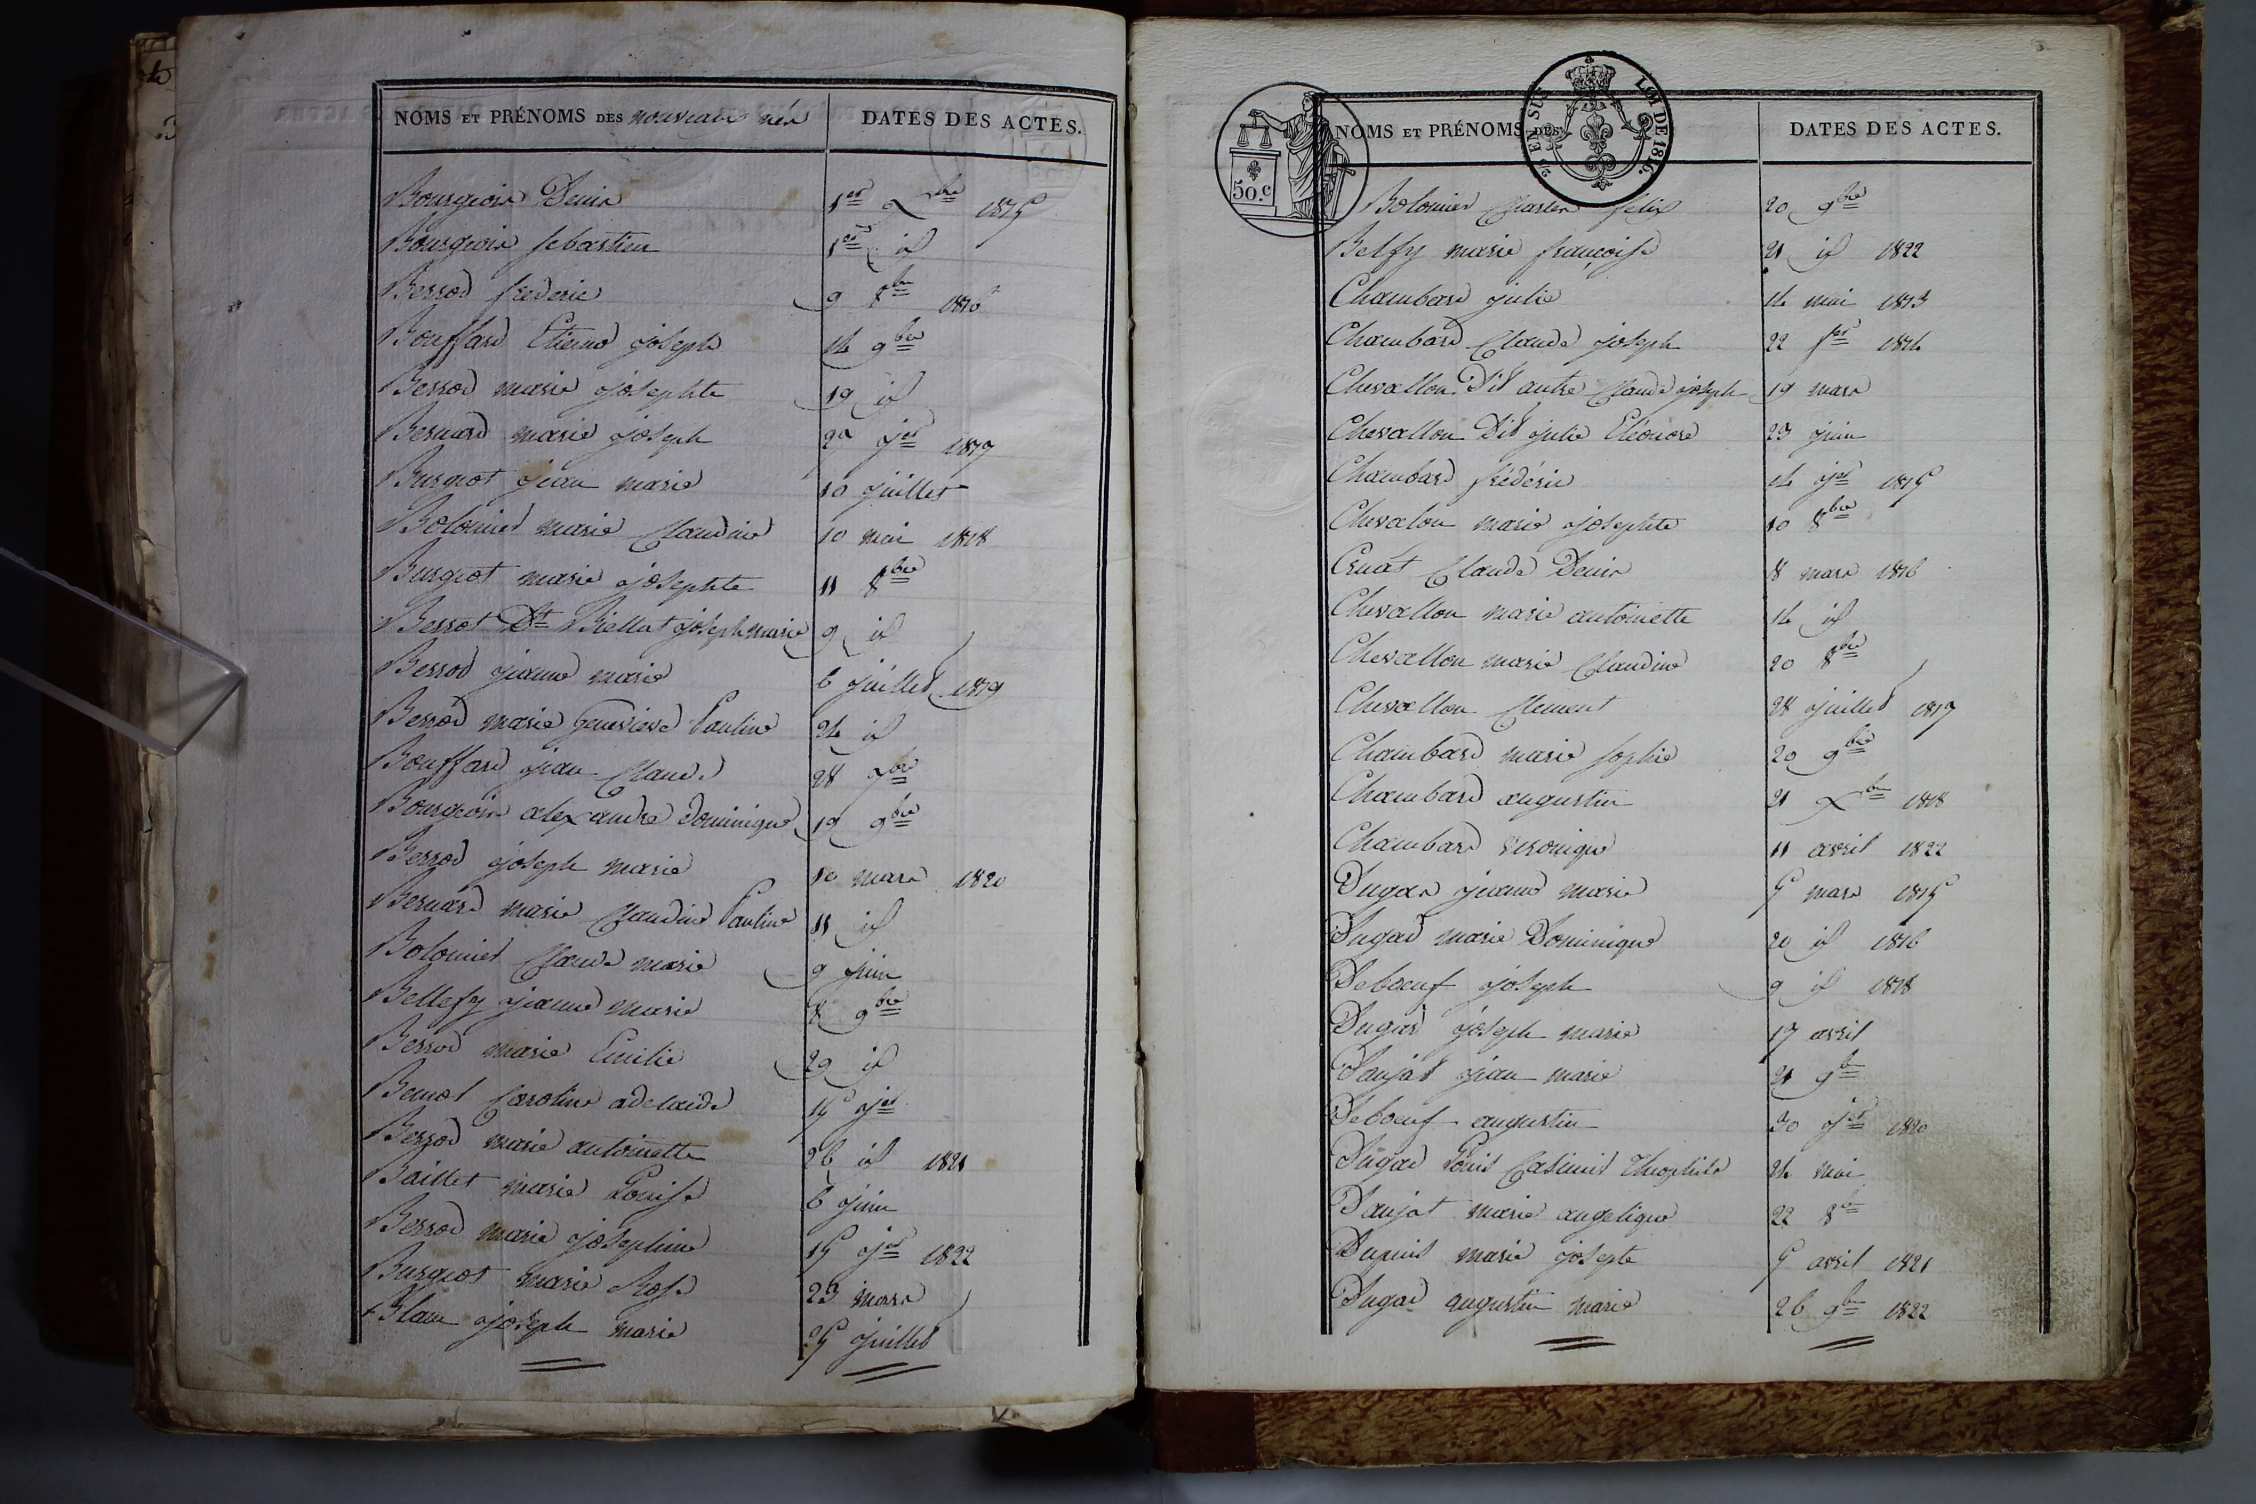 NOMS ET PRÉNOMS DES nouveaux nés DATES DES ACTES.
Bourgeois Denis 1er Xbre 1815
Bourgeois sebastien 1er id
Berrod frederic 9 8bre 1816
Bouffard Etienne joseph 14 9bre
Berrod marie josephte 19 id
Bernard marie joseph jer 1817
Burgeot jean marie 10 juillet
Bolomier marie Claudine 10 mai 1818
Burgeot marie josephte 11 8bre
Berrot Dt Biellat joseph marie 9 id
Berrod jeanne marie 6 juillet 1819
Berrod marie Genevieve Pauline 24 id
Bouffard jean Claude 28 7bre
Bourgeois alexandre dominique 19 9bre
Berrod joseph marie 10 mars 1820
Bernard marie Claudine Pauline 11 id
Bolomier Claude marie 9 juin
Bellefy jeanne marie 8 9bre
Berrod marie Emilie 29 id
Benoit Caroline adelaide jer
Berrod marie antoinette 26 id 1821
Baillet marie Louise 6 juin
Berrod marie josephine 15 jer 1822
Burgeot marie Rose 23 mars
Blanc joseph marie 25 juillet
50.c
2/ EN SUS LOI DE 1816.
NOMS ET PRÉNOMS DES DATES DES ACTES.
Bolomier Charles felix 20 9bre
Belfy marie françoise 21 id 1822
Chambard julie 14 mai 1813
Chambard Claude joseph 22 fer 1814
Chevallon Dit autre Claude joseph 19 mars
Chevallon Dit julie Eléonore 23 juin
Chambard frédéric 14 jer 1815
Chevalon marie josephte 10 8bre
Cruat Claude Denis 8 mars 1816
Chevallon marie antoinette 14 id
Chevallon marie Claudine 20 8bre
Chevallon Clement 28 juillet 1817
Chambard marie sophie 20 9bre
Chambard augustin 21 Xbre 1818
Chambard veronique 11 avril 1822
Dugas jeanne marie 5 mars 1815
Dugad marie Dominique 20 id 1816
Deboeuf joseph 9 id 1818
Dugad joseph marie 17 avril
Daujat jean marie 21 9bre
Deboeuf augustin 30 jer 1820
Dugad Louis Casimir Theophile 24 mai
Daujat marie angelique 22 8bre
Dupuis marie josepte 5 avril 1821
Dugad augustin marie 26 9bre 1822